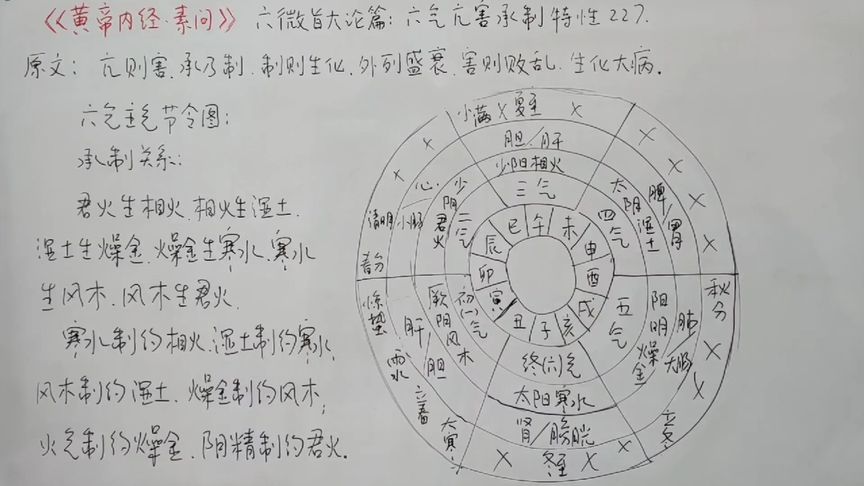 《《黄帝内经·素问》》 六微旨大论篇：六气亢害承制特性227.
原文：亢则害.承乃制.制则生化.外列盛衰.害则败乱.生化大病.
六气主气节令图：
承制关系：
君火生相火.相火生湿土.
湿土生燥金.燥金生寒水.寒水
生风木.风木生君火.
寒水制约相火.湿土制约寒水.
风木制约湿土.燥金制约风木;
火气制约燥金.阴精制约君火.
小满 X 夏至 X
胆/肝
少阳相火
三气
X X X X
脾/胃
太阴湿土
四气
秋分 X X 立冬
肺 大肠
阳明燥金
五气
X 冬至 X X
肾/膀胱
太阳寒水
终(六)气
惊蛰 雨水 立春 大寒
肝/胆
厥阴风木
初(一)气
春分 清明 X X
心.小肠
少阴君火
二气
子 丑 寅 卯 辰 巳 午 未 申 酉 戌 亥